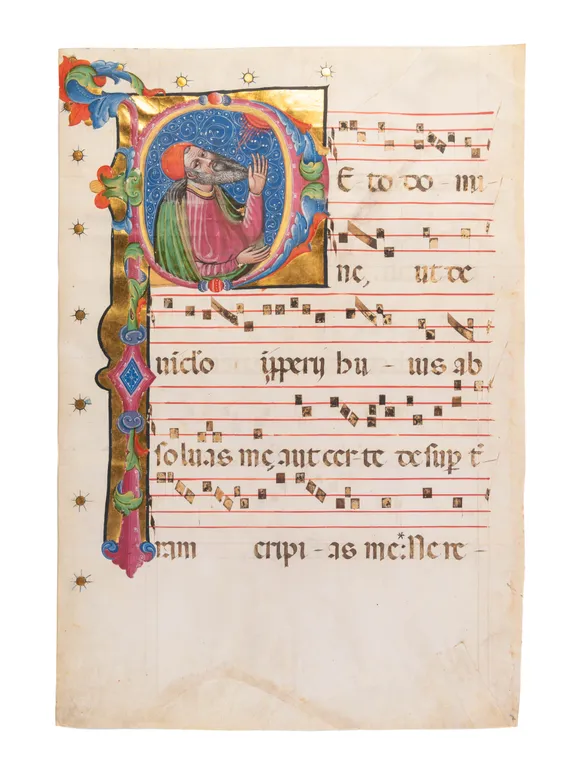 PE to do - mi -
ne, ut de
uiclo ipperij hu - ius ab
soluas mę, aut cer-te desup t̄
ram eripi - as me:* Ne re -